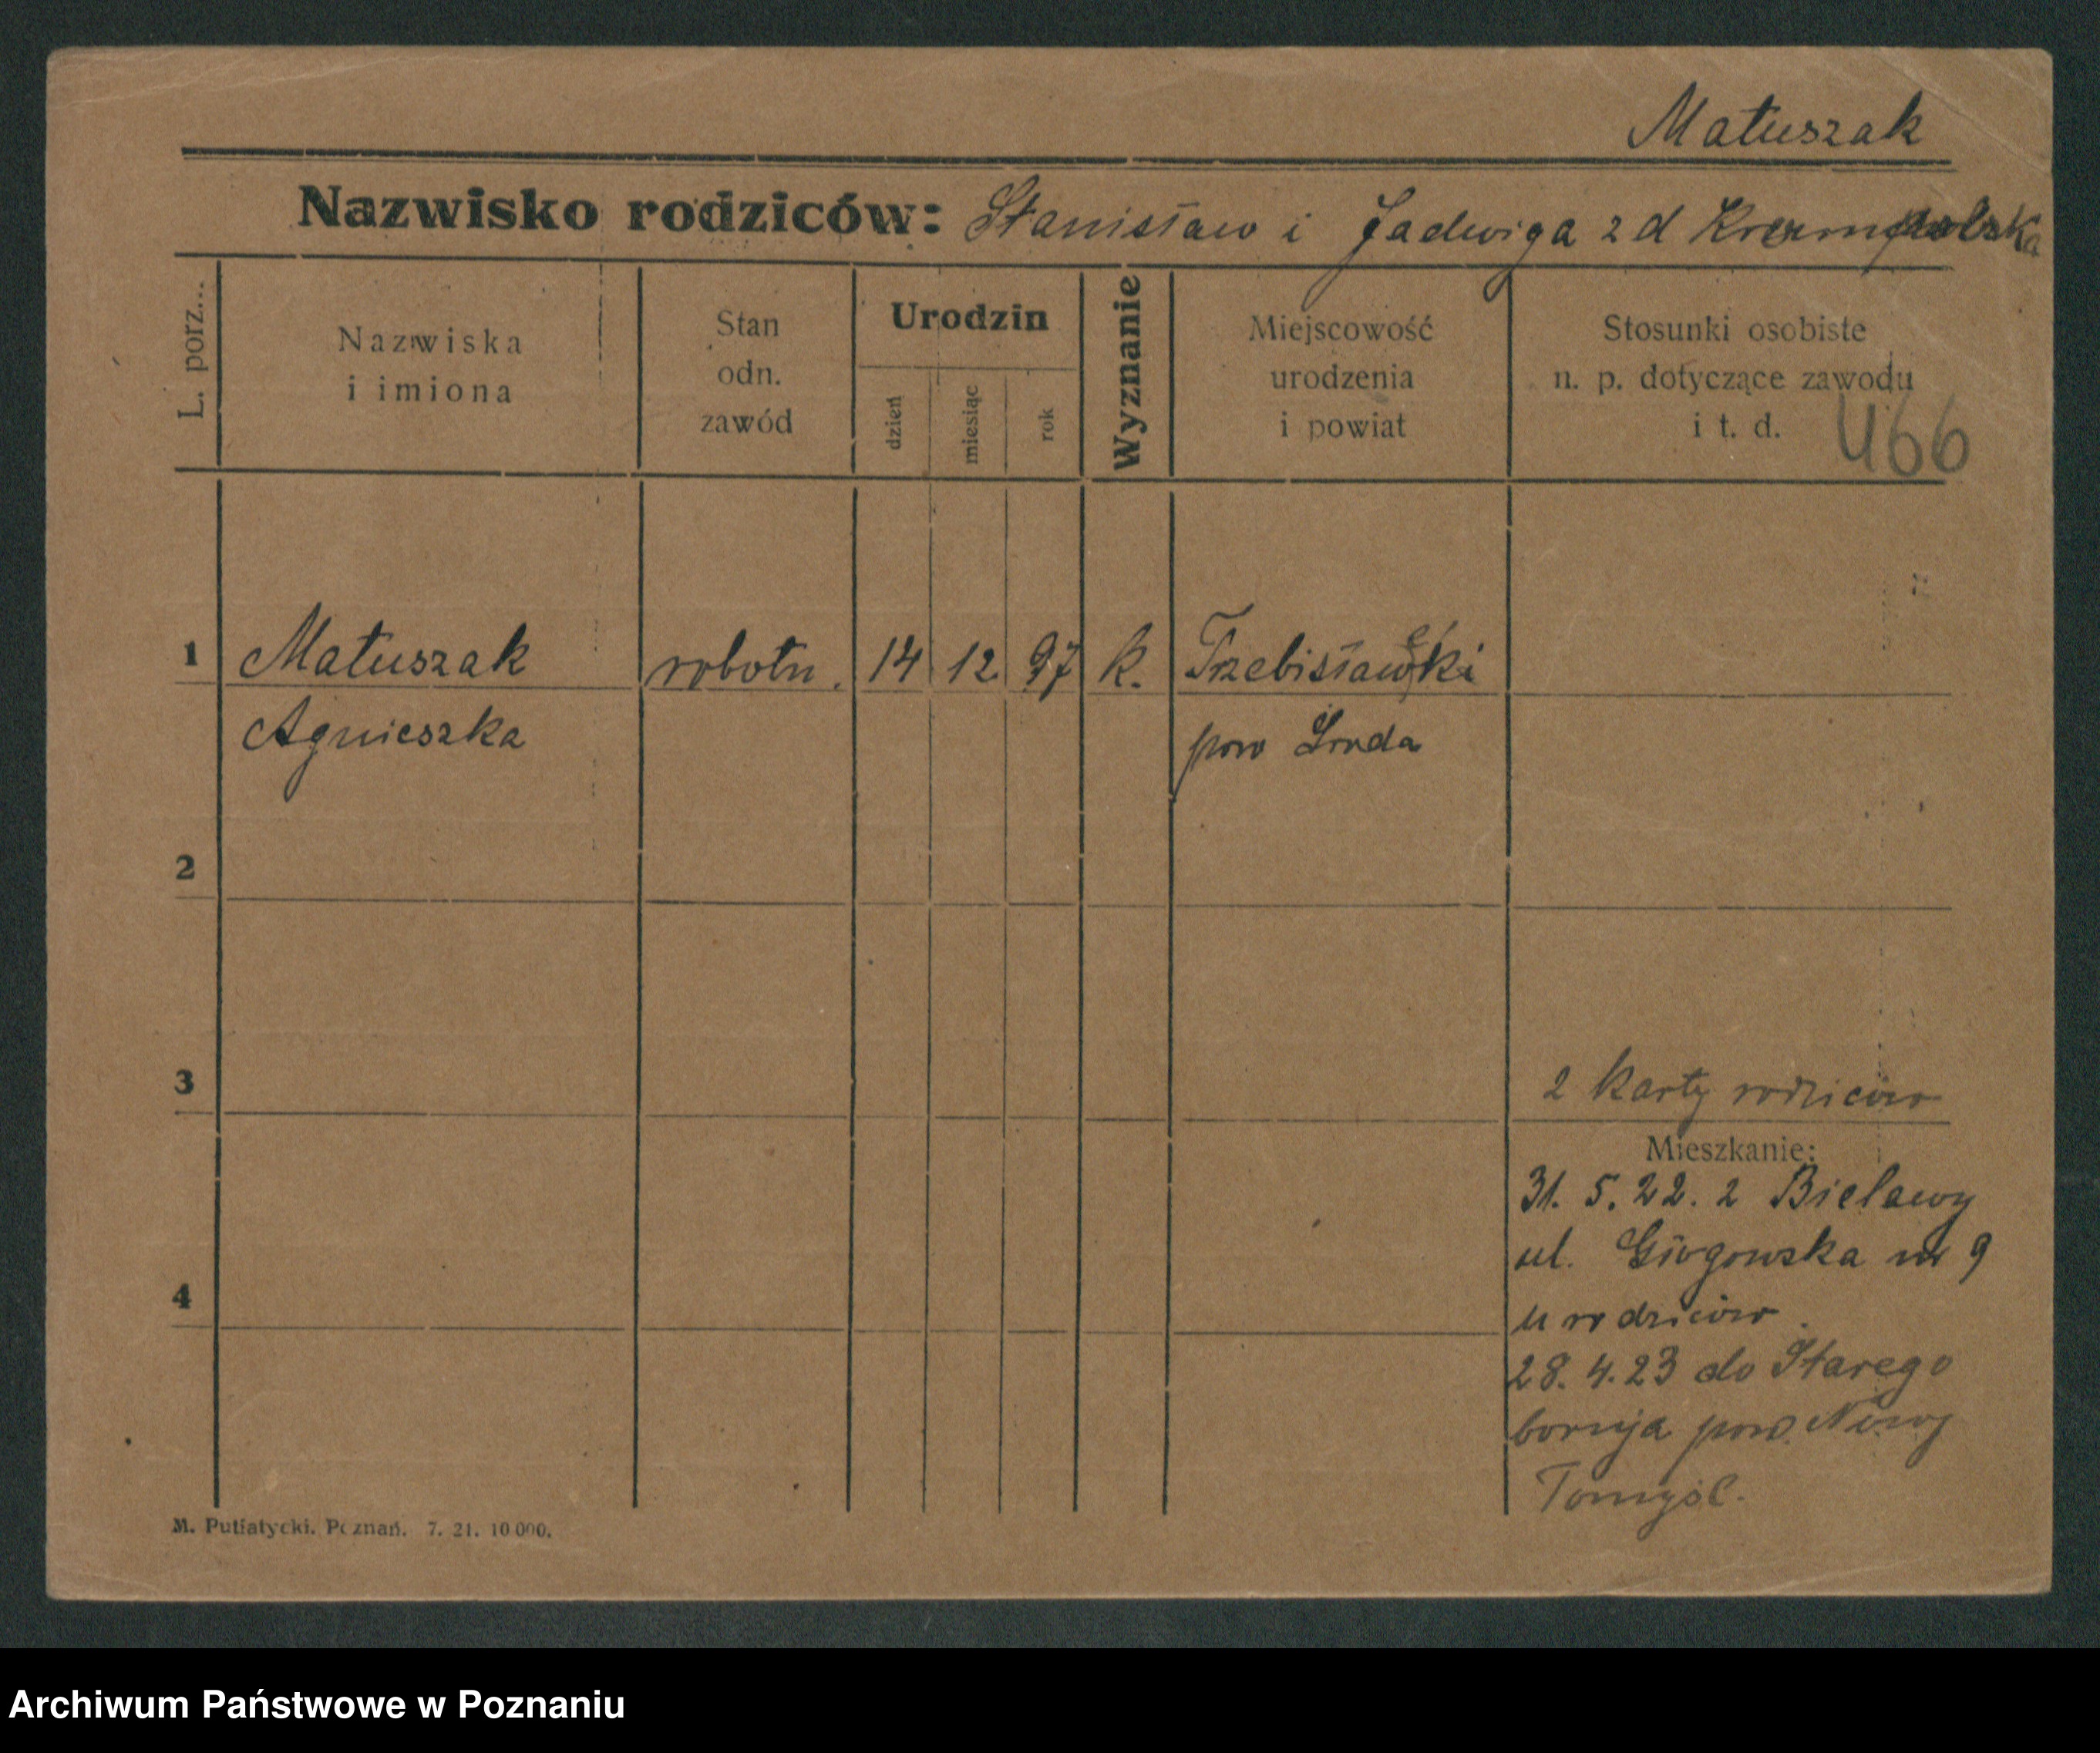 Matuszak
Nazwisko rodziców: Stanisław i Jadwiga z d
L. porz...
Nazwiska
i imiona
Stan
odn.
zawód
Urodzin
dzień
miesiąc
rok
Wyznanie
Miejscowość
urodzenia
i powiat
Stosunki osobiste
n. p. dotyczące zawodu
i t. d.
466
1 Matuszak robotn. 14 12. 97 k. Trzebisławki
Agnieszka pow Środa
2
3
2 karty rodziców
Mieszkanie:
31. 5. 22. z Bielawy
ul. Głogowska nr 9
u rodziców.
4
28. 4. 23 do Starego
boruja pow. Nowy
Tomyśl.
M. Putiatycki. Poznań. 7. 21. 10 000.
Archiwum Państwowe w Poznaniu